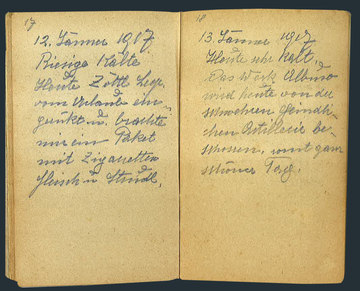 17
12. Jänner 1917
Riesige Kälte
Heute Zottl Sepp
vom Urlaub ein-
gerückt u. brachte
mir ein Paket
mit Zigaretten
Fleisch u. Strudl.
18
13. Jänner 1917.
Heute sehr kalt,
Das Werk Albuso
wird heute von der
schweren feindli-
chen Artillerie be-
schossen, sonst ganz
schöner Tag.